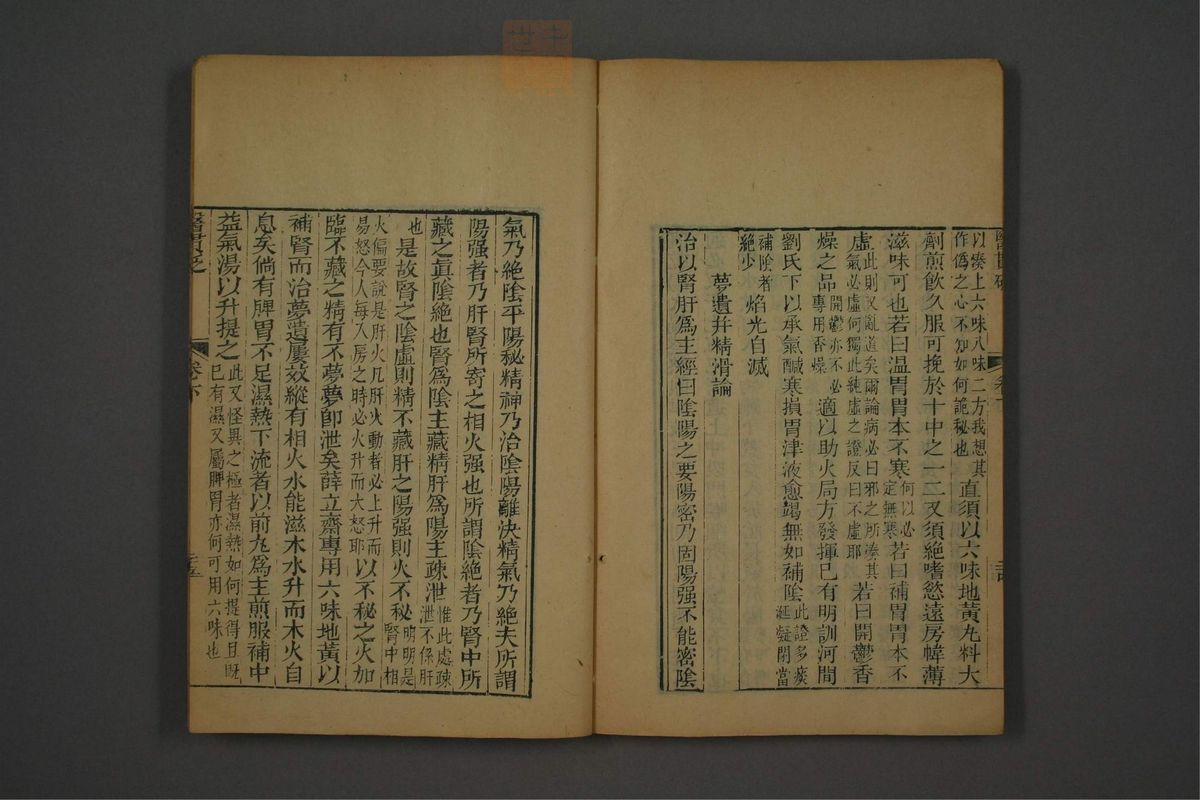 以湊上六味八味二方我想其作僞之心不知如何詭秘也直須以六味地黃丸料大
劑煎飲久服可挽於十中之一二又須絕嗜慾遠房幃薄
滋味可也若曰温胃胃本不寒何以必定無寒若曰補胃胃本不
虛此則又亂道矣爾論病必曰邪之所湊其氣必虛何獨此純虛之證反曰不虛耶若曰開鬱香
燥之品開鬱亦不必專用香燥適以助火局方發揮已有明訓河間
劉氏下以承氣鹹寒損胃津液愈竭無如補陰此證多痰涎凝閉當
補陰者絕少焰光自滅
夢遺幷精滑論
治以腎肝爲主經曰陰陽之要陽密乃固陽强不能密陰
氣乃絕陰平陽秘精神乃治陰陽離決精氣乃絕夫所謂
陽强者乃肝腎所寄之相火强也所謂陰絕者乃腎中所
藏之眞陰絕也腎爲陰主藏精肝爲陽主疎泄惟此處疎泄不係肝
也是故腎之陰虛則精不藏肝之陽强則火不秘明明是腎中相
火偏要說是肝火凡肝火動者必上升而易怒今人每入房之時必火升而大怒耶以不秘之火加
臨不藏之精有不夢夢卽泄矣薛立齋專用六味地黃以
補腎而治夢遺屢效縱有相火水能滋木水升而木火自
息矣倘有脾胃不足濕熱下流者以前丸爲主煎服補中
益氣湯以升提之此又怪異之極者濕熱如何提得且旣已有濕又屬脾胃亦何可用六味也
醫貫砭
卷下